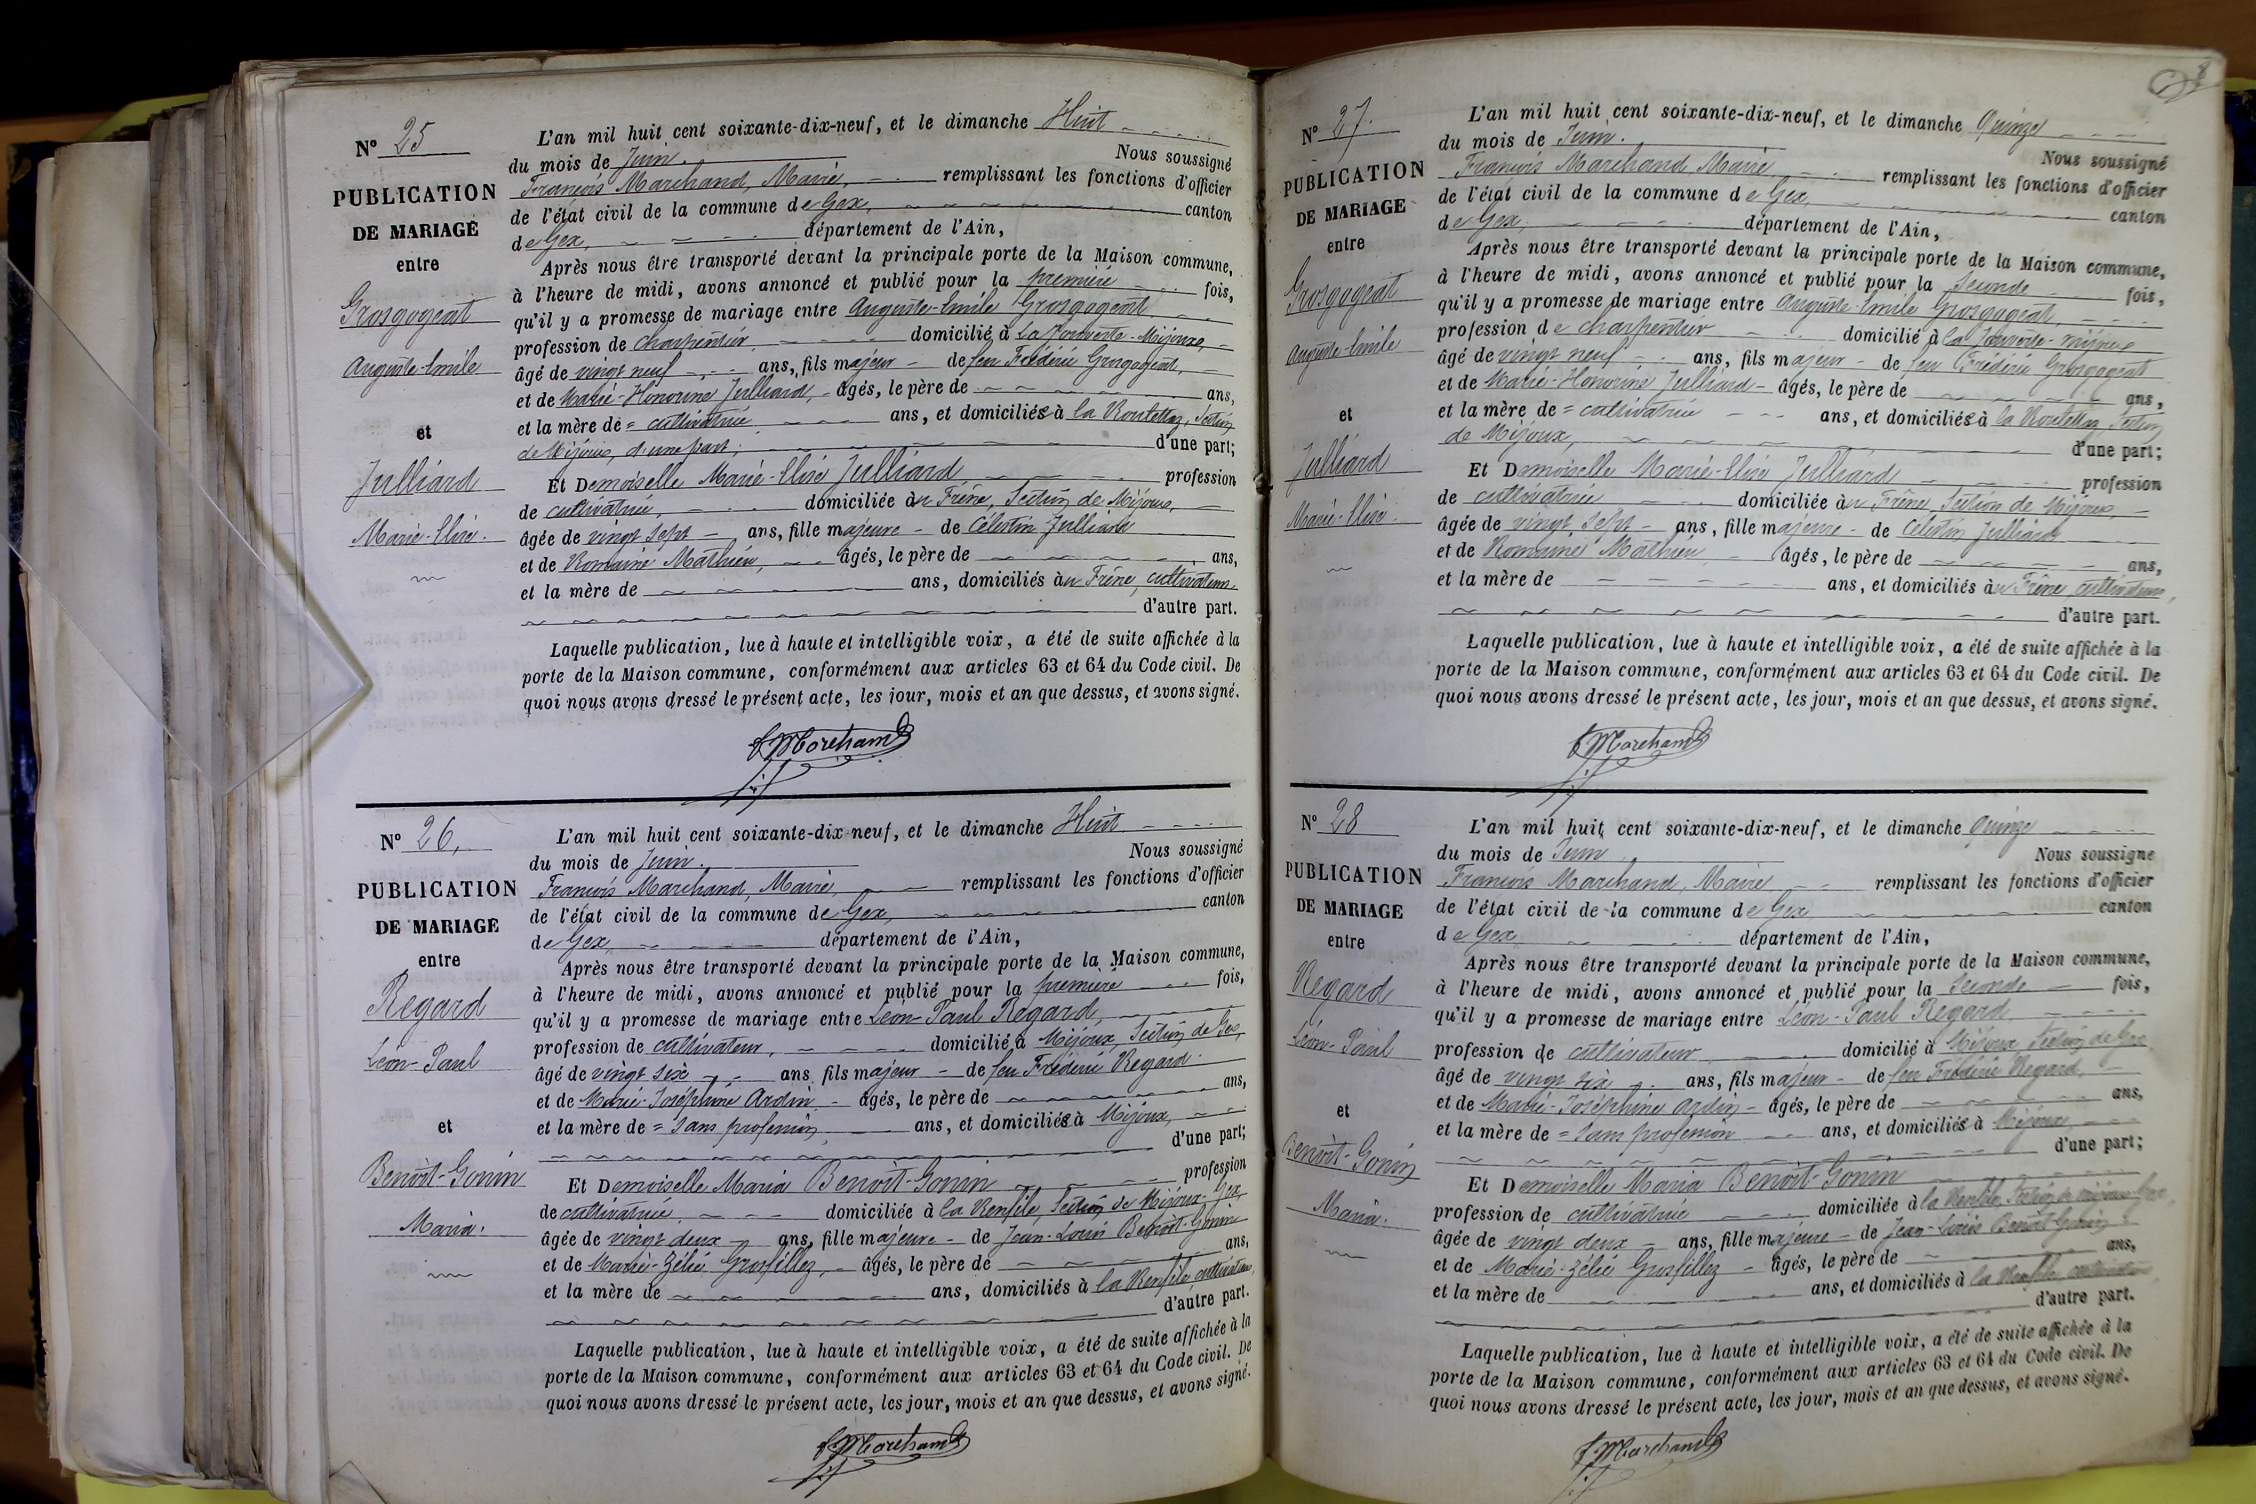 N° 25
PUBLICATION
DE MARIAGE
entre
Grosgogeat
Auguste-Emile
et
Julliard
Marie-Elise.
L'an mil huit cent soixante-dix-neuf, et le dimanche Huit
du mois de Juin. Nous soussigné
François Marchand, Maire, remplissant les fonctions d'officier
de l'état civil de la commune de Gex, canton
de Gex, département de l'Ain,
Après nous être transporté devant la principale porte de la Maison commune,
à l'heure de midi, avons annoncé et publié pour la première fois,
qu'il y a promesse de mariage entre Auguste-Emile Grosgogeat
profession de charpentier domicilié à La Mijoux,
âgé de vingt neuf ans, fils majeur de feu Frédéric Grosgogeat,
et de Marie-Honorine Julliard, âgés, le père de ans,
et la mère de = cultivatrice ans, et domiciliés à la Section
de Mijoux, d'une part; d'une part;
Et Demoiselle Marie-Elise Julliard profession
de cultivatrice, domiciliée au Frêne, Section de Mijoux,
âgée de vingt sept ans, fille majeure de Célestin Julliard
et de Romaine Mathieu, âgés, le père de ans,
et la mère de ans, domiciliés au Frêne, cultivateurs
d'autre part.
Laquelle publication, lue à haute et intelligible voix, a été de suite affichée à la
porte de la Maison commune, conformément aux articles 63 et 64 du Code civil. De
quoi nous avons dressé le présent acte, les jour, mois et an que dessus, et avons signé.
F. Marchand
N° 26,
PUBLICATION
DE MARIAGE
entre
Regard
Léon-Paul
et
Benoît-Gonin
Maria.
L'an mil huit cent soixante-dix-neuf, et le dimanche Huit
du mois de Juin. Nous soussigné
François Marchand, Maire, remplissant les fonctions d'officier
de l'état civil de la commune de Gex, canton
de Gex, département de l'Ain,
Après nous être transporté devant la principale porte de la Maison commune,
à l'heure de midi, avons annoncé et publié pour la première fois,
qu'il y a promesse de mariage entre Léon-Paul Regard,
profession de cultivateur, domicilié à Mijoux, Section de Gex,
âgé de vingt six ans, fils majeur de feu Frédéric Regard.
et de Marie-Joséphine Ardin âgés, le père de ans,
et la mère de = sans profession, ans, et domiciliés à Mijoux,
d'une part;
Et Demoiselle Maria Benoît-Gonin profession
de cultivatrice, domiciliée à la Renfile, Section de Mijoux-Gex,
âgée de vingt deux ans, fille majeure de Jean-Louis Benoît-Gonin
et de Marie-Zélie Grosfillez, âgés, le père de ans,
et la mère de ans, domiciliés à la Renfile, cultivateurs,
d'autre part.
Laquelle publication, lue à haute et intelligible voix, a été de suite affichée à la
porte de la Maison commune, conformément aux articles 63 et 64 du Code civil. De
quoi nous avons dressé le présent acte, les jour, mois et an que dessus, et avons signé.
F. Marchand
N° 27.
PUBLICATION
DE MARIAGE
entre
Grosgogeat
Auguste-Emile
et
Julliard
Marie-Elise.
L'an mil huit cent soixante-dix-neuf, et le dimanche Quinze
du mois de Juin. Nous soussigné
François Marchand Maire remplissant les fonctions d'officier
de l'état civil de la commune de Gex, canton
de Gex, département de l'Ain,
Après nous être transporté devant la principale porte de la Maison commune,
à l'heure de midi, avons annoncé et publié pour la Seconde fois,
qu'il y a promesse de mariage entre Auguste-Emile Grosgogeat,
profession de charpentier domicilié à la Mijoux
âgé de vingt neuf ans, fils majeur de feu Frédéric Grosgogeat
et de Marie-Honorine Julliard âgés, le père de ans,
et la mère de = cultivatrice ans, et domiciliés à la Section
de Mijoux, d'une part;
Et Demoiselle Marie-Elise Julliard profession
de cultivatrice domiciliée au Frêne, Section de Mijoux,
âgée de vingt sept ans, fille majeure de Célestin Julliard
et de Romaine Mathieu âgés, le père de ans,
et la mère de ans, et domiciliés au Frêne, cultivateurs,
d'autre part.
Laquelle publication, lue à haute et intelligible voix, a été de suite affichée à la
porte de la Maison commune, conformément aux articles 63 et 64 du Code civil. De
quoi nous avons dressé le présent acte, les jour, mois et an que dessus, et avons signé.
F. Marchand
N° 28
PUBLICATION
DE MARIAGE
entre
Regard
Léon-Paul
et
Benoît-Gonin
Maria.
L'an mil huit cent soixante-dix-neuf, et le dimanche Quinze
du mois de Juin Nous soussigné
François Marchand, Maire remplissant les fonctions d'officier
de l'état civil de la commune de Gex canton
de Gex département de l'Ain,
Après nous être transporté devant la principale porte de la Maison commune,
à l'heure de midi, avons annoncé et publié pour la Seconde fois,
qu'il y a promesse de mariage entre Léon-Paul Regard
profession de cultivateur domicilié à Mijoux Section de Gex
âgé de vingt six ans, fils majeur de feu Frédéric Regard,
et de Marie-Joséphine Ardin âgés, le père de ans,
et la mère de = sans profession ans, et domiciliés à Mijoux,
d'une part;
Et Demoiselle Maria Benoît-Gonin
profession de cultivatrice domiciliée à la Renfile, Section de Mijoux Gex,
âgée de vingt deux ans, fille majeure de Jean-Louis Benoît-Gonin
et de Marie-Zélie Grosfillez âgés, le père de ans,
et la mère de ans, et domiciliés à la Renfile, cultivateurs
d'autre part.
Laquelle publication, lue à haute et intelligible voix, a été de suite affichée à la
porte de la Maison commune, conformément aux articles 63 et 64 du Code civil. De
quoi nous avons dressé le présent acte, les jour, mois et an que dessus, et avons signé.
F. Marchand